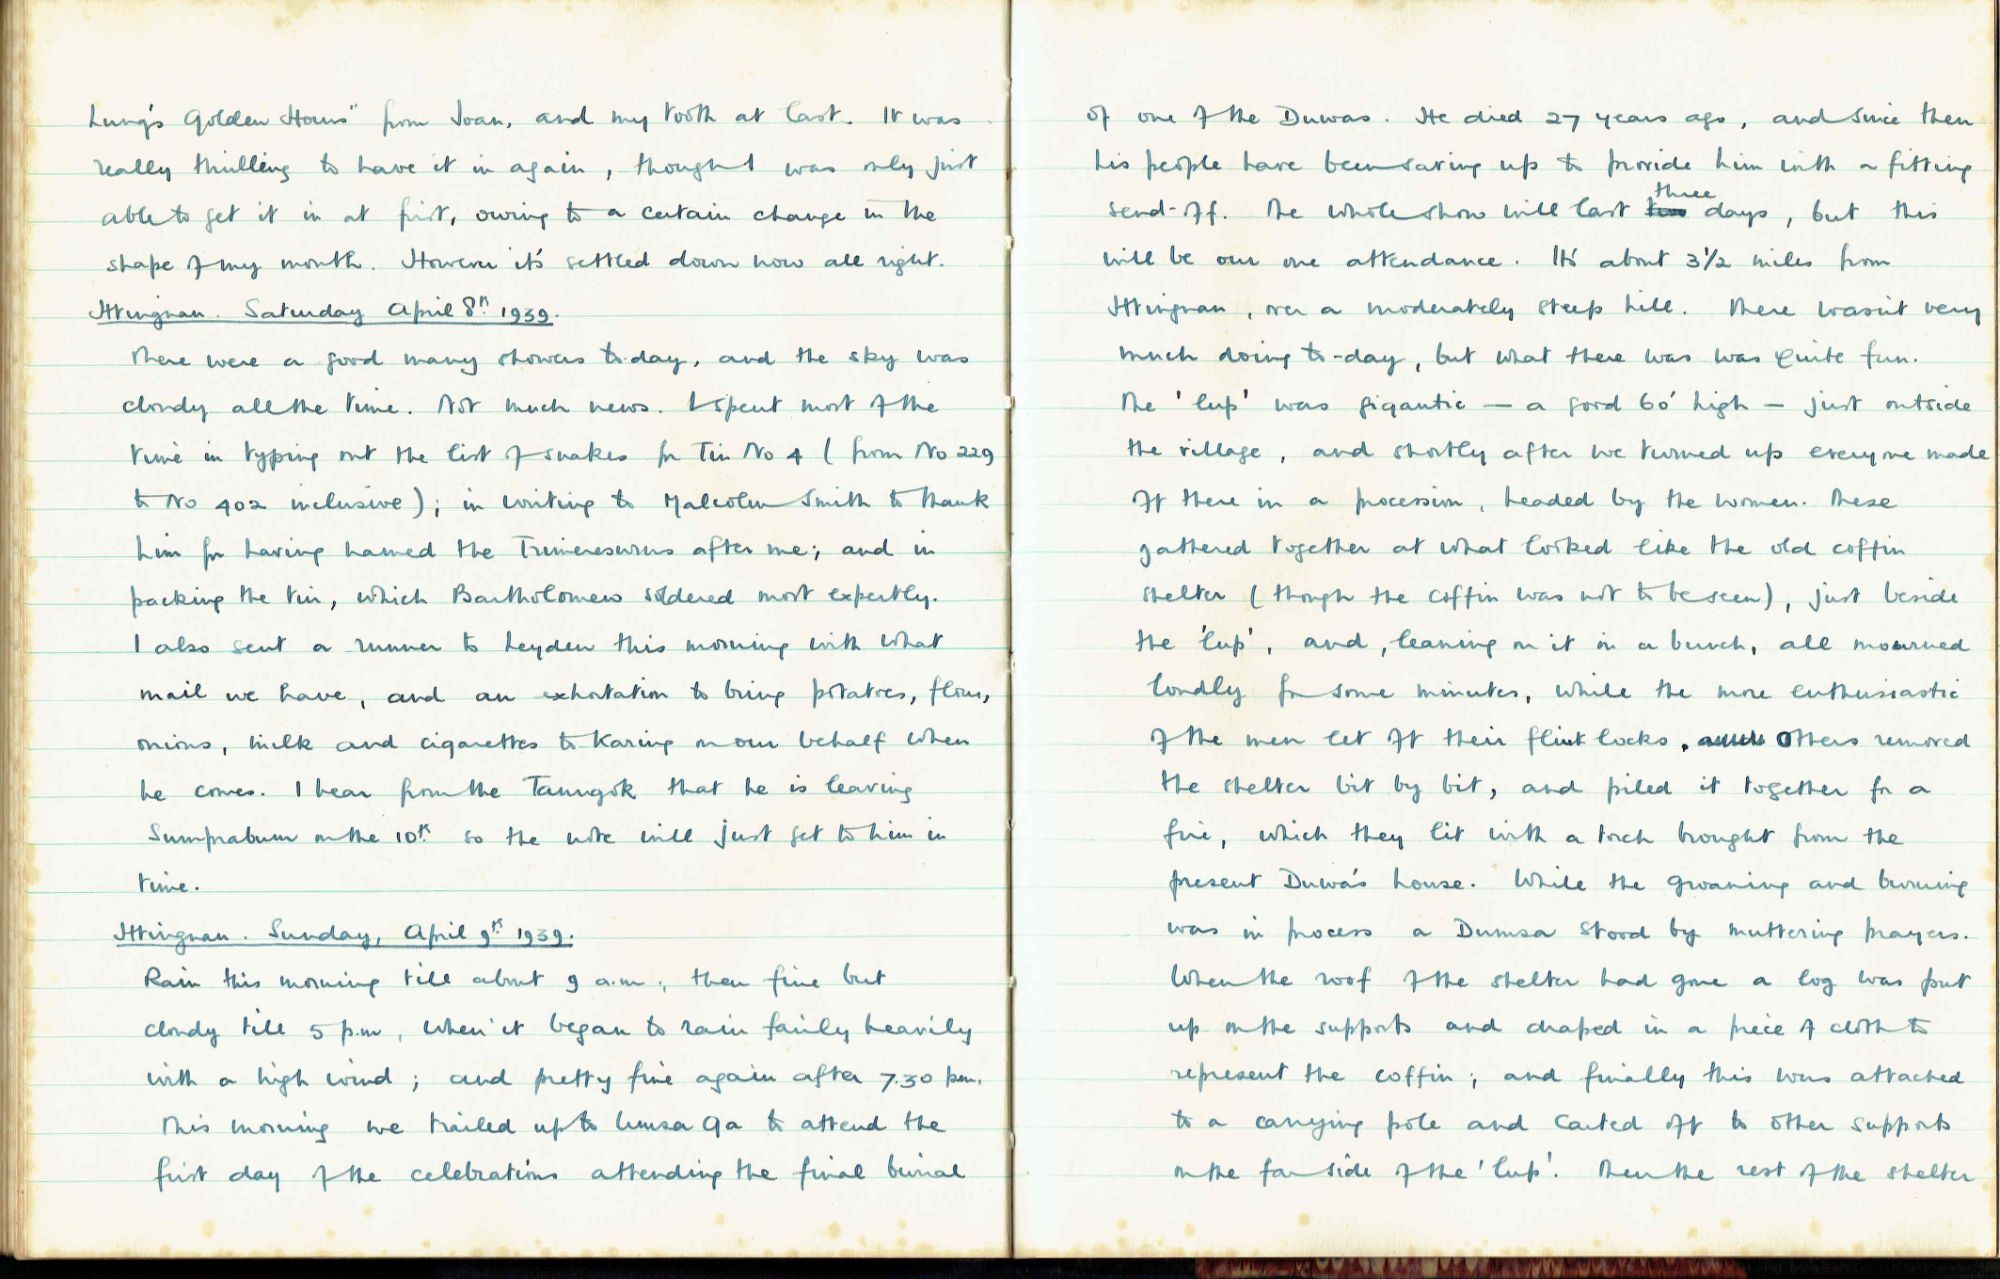 Lung's Golden Hours" from Joan, and my tooth at last. It was
really thrilling to have it in again, though I was only just
able to get it in at first, owing to a certain change in the
shape of my mouth. However it's settled down now all right.
Htingnan. Saturday April 8th 1939.
There were a good many showers to-day, and the sky was
cloudy all the time. Not much news. I spent most of the
time in typing out the list of snakes for Tin No 4 (from No 229
to No 402 inclusive); in writing to Malcolm Smith to thank
him for having named the Trimeresurus after me; and in
packing the tin, which Bartholomew soldered most expertly.
I also sent a runner to Leyden this morning with what
mail we have, and an exhortation to bring potatoes, flour,
onions, milk and cigarettes to Karing on our behalf when
he comes. I hear from the Taungok that he is leaving
Sumprabum on the 10th so the note will just get to him in
time.
Htingnan. Sunday, April 9th 1939.
Rain this morning till about 9 a.m.; then fine but
cloudy till 5 p.m, when it began to rain fairly heavily
with a high wind; and pretty fine again after 7.30 p.m.
This morning we trailed up to Ga to attend the
first day of the celebrations attending the final burial
of one of the Duwas. He died 27 years ago, and since then
his people have been saving up to provide him with a fitting
send-off. The whole show will last two three days, but this
will be our one attendance. It's about 3 1/2 miles from
Htingnan, over a moderately steep hill. There wasn't very
much doing to-day, but what there was was quite fun.
The 'lup' was gigantic — a good 60' high — just outside
the village, and shortly after we turned up everyone made
off there in a procession, headed by the women. These
gathered together at what looked like the old coffin
shelter (though the coffin was not to be seen), just beside
the 'lup', and, leaning on it in a bunch, all mourned
loudly for some minutes, while the more enthusiastic
of the men let off their flint locks. Others removed
the shelter bit by bit, and piled it together for a
fire, which they lit with a torch brought from the
present Duwa's house. While the groaning and burning
was in process a Dumsa stood by muttering prayers.
When the roof of the shelter had gone a log was put
up on the supports and draped in a piece of cloth to
represent the coffin; and finally this was attached
to a carrying pole and carted off to other supports
on the far side of the 'lup'. Then the rest of the shelter